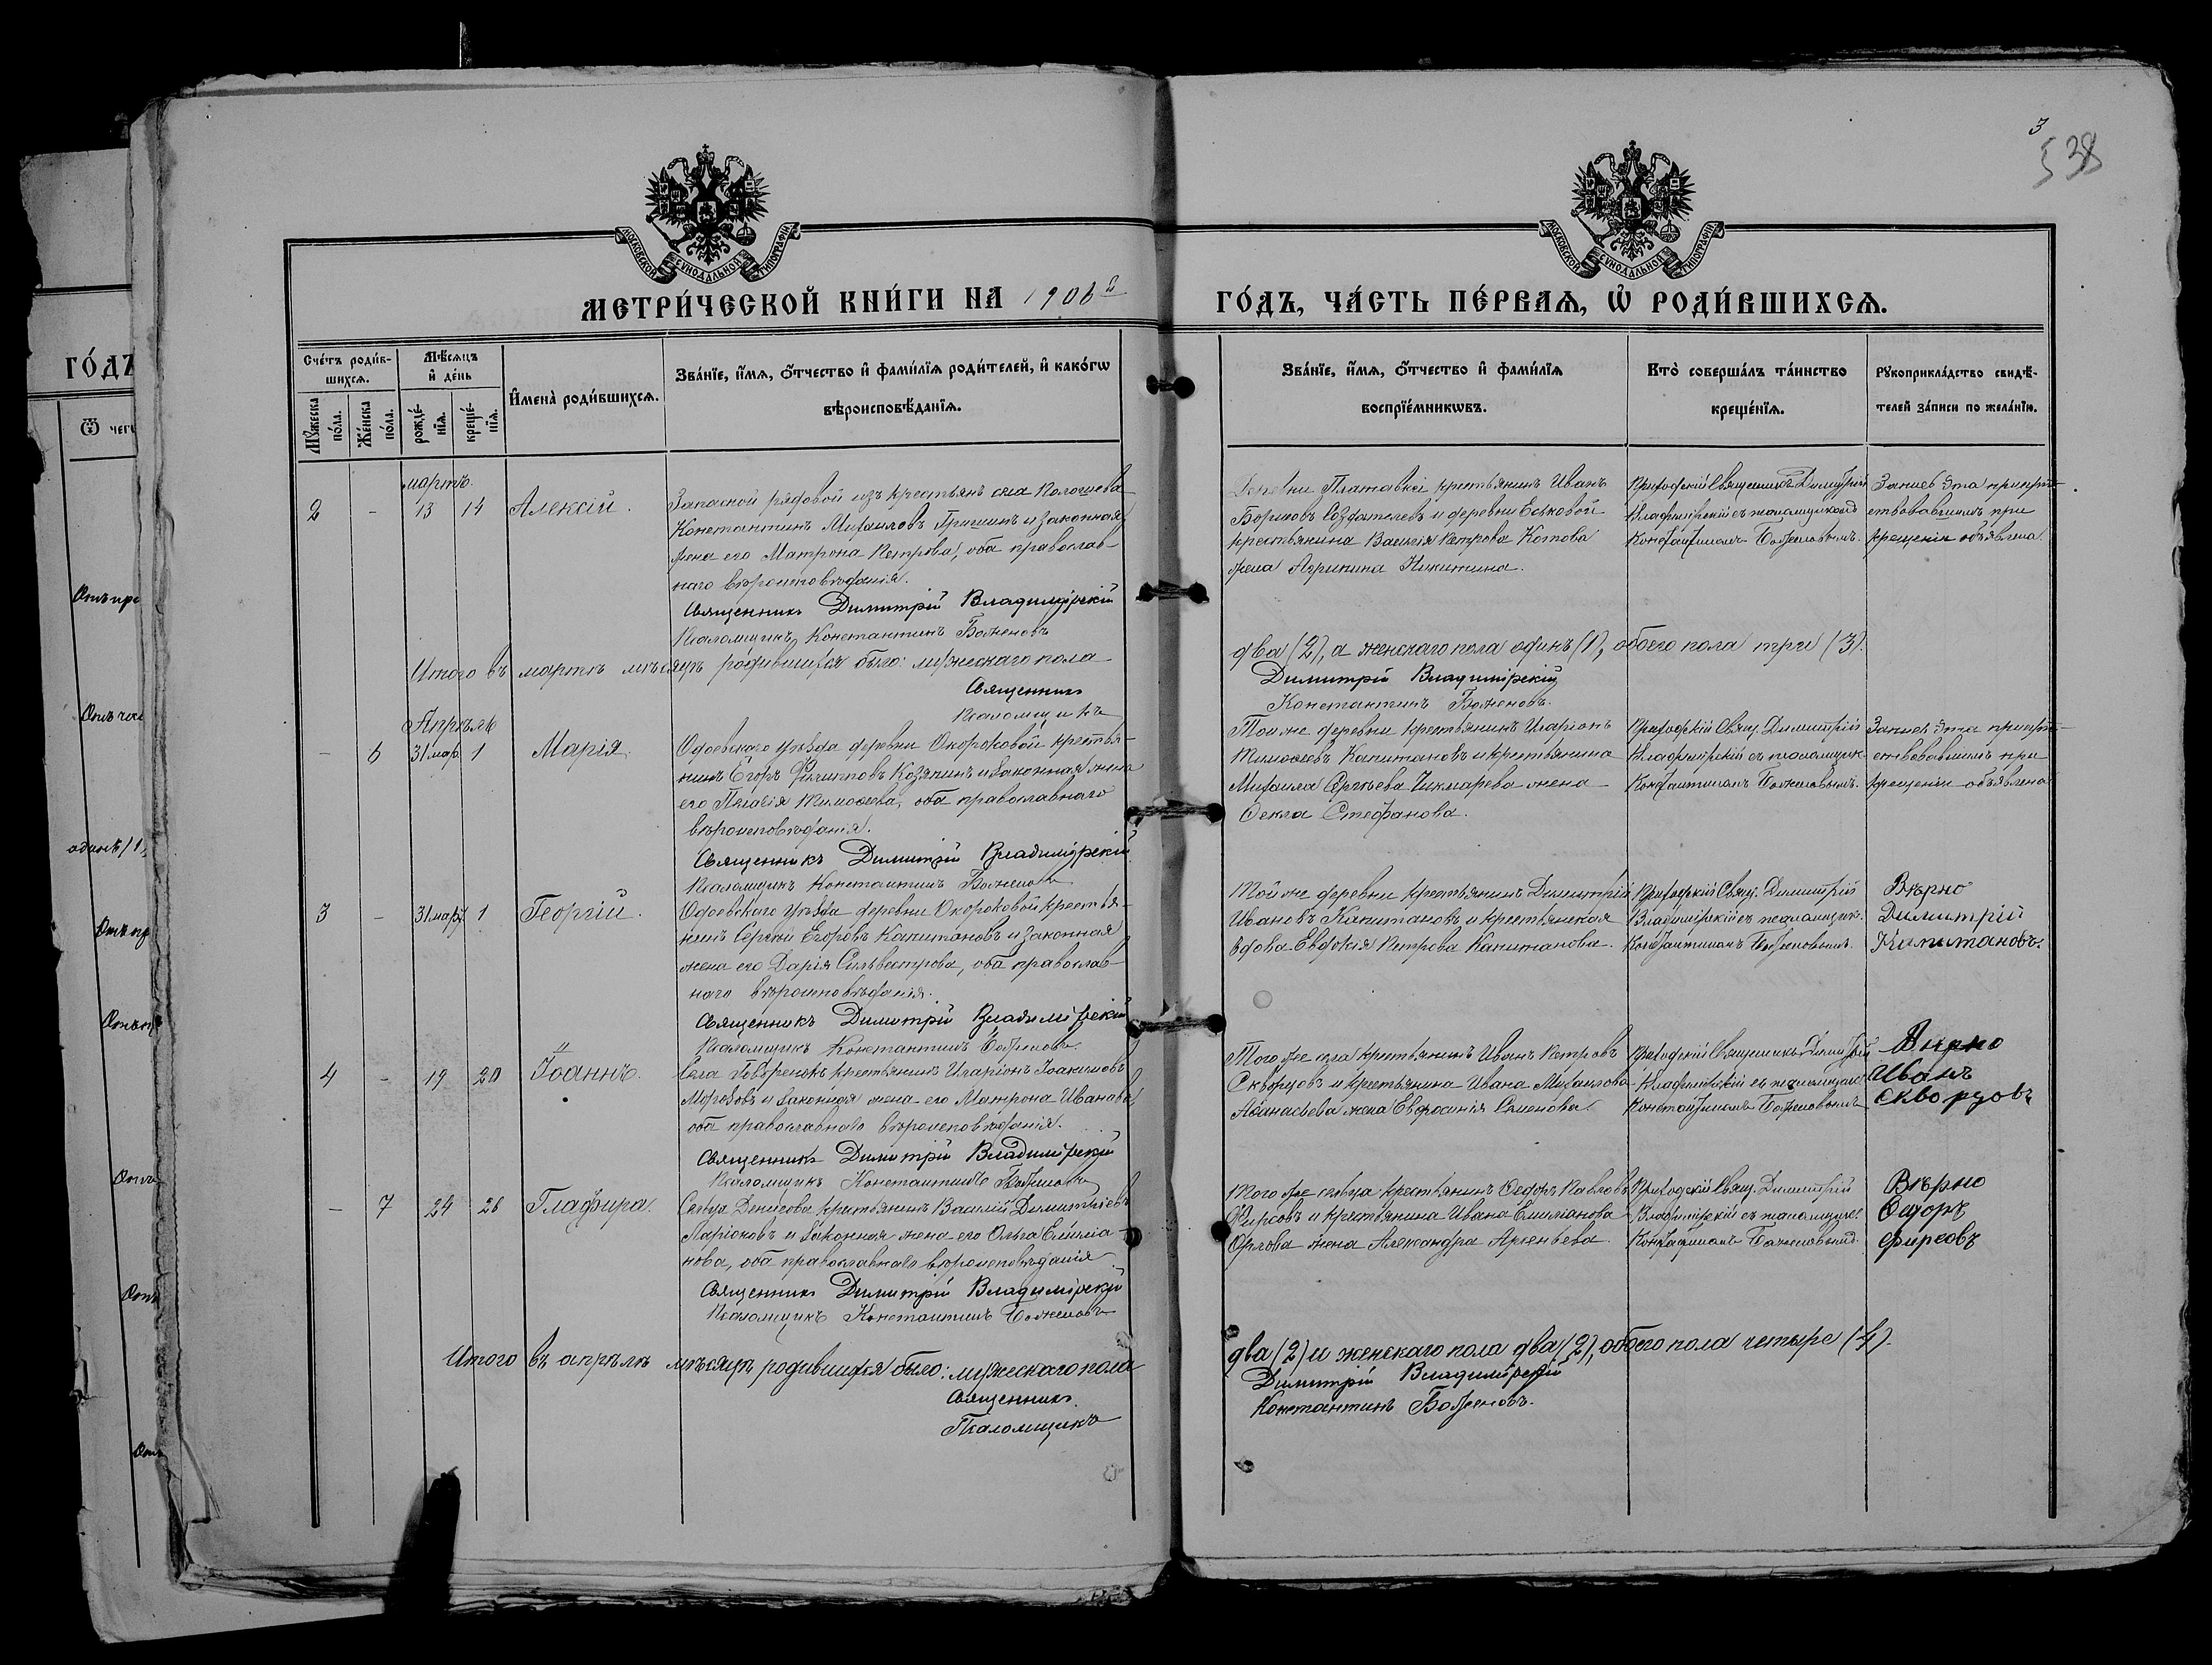 3
538
МОСКОВСКОЙ СѴНОДАЛЬНОЙ ТИПОГРАФІИ
МОСКОВСКОЙ СѴНОДАЛЬНОЙ ТИПОГРАФІИ
МЕТРИ́ЧЕСКОЙ КНИ́ГИ НА 1906 ГО́ДЪ, ЧА́СТЬ ПЕ́РВАѦ, Ѡ҆ РОДИ́ВШИХСѦ.
ГО́ДЪ
Ѿ чегѡ
Сче́тъ роди́в-
шихсѧ.
Мꙋ́жеска по́ла.
Же́нска по́ла.
Мѣ́сѧцъ
и҆ де́нь
рожде́-
нїѧ.
креще́-
нїѧ.
И҆мена̀ роди́вшихсѧ.
Зва́нїе, и҆́мѧ, ѻ҆́тчество и҆ фами́лїѧ роди́телей, и҆ како́гѡ
вѣроисповѣ́данїѧ.
Зва́нїе, и҆́мѧ, ѻ҆́тчество и҆ фами́лїѧ
воспрїе́мникѡвъ.
Кто̀ соверша́лъ та́инство
креще́нїѧ.
Рꙋкоприкла́дство свидѣ́-
телей за́писи по жела́нїю.
мартъ
2 - 13 14 Алексій.
Запасной рядовой изъ крестьянъ села
Константинъ Михаиловъ Гришинъ и законная
жена его Матрона Петрова, оба православ-
наго вѣроисповѣданія.
Священникъ Димитрій Владимірскій
Псаломщикъ Константинъ Баженовъ
крестьянинъ Иванъ
Борисовъ и деревни
крестьянина Василія Петрова Котова
жена Агрипина Никитина.
Приходскій Священникъ Димитрій
Владимірскій съ псаломщикомъ
Константиномъ Баженовымъ.
Запись эта присут-
ствовавшимъ при
крещеніи объявлена.
Итого въ мартѣ мѣсяцѣ родившихся было: мужескаго пола два (2), а женскаго пола одинъ (1), обоего пола три (3).
Священникъ Димитрій Владимірскій
Псаломщикъ Константинъ Баженовъ.
Апрѣль
- 6 31 мар. 1 Марія
Одоевскаго уѣзда деревни Окороковой крестья-
нинъ Егоръ Филипповъ Козякинъ и законная жена
его Пелагія Тимоѳеева, оба православнаго
вѣроисповѣданія.
Священникъ Димитрій Владимірскій
Псаломщикъ Константинъ Баженовъ
Той же деревни крестьянинъ Иларіонъ
Тимоѳеевъ Капитановъ и крестьянина
Михаила Сергѣева Чикмарева жена
Ѳекла Стефанова.
Приходскій Свящ. Димитрій
Владимірскій съ псаломщик.
Константиномъ Баженовымъ.
Запись эта присут-
ствовавшимъ при
крещеніи объявлена
3 - 31 мар. 1 Георгій.
Одоевскаго уѣзда деревни Окороковой крестья-
нинъ Сергѣй Егоровъ Капитановъ и законная
жена его Дарія Сильвестрова, оба православ-
наго вѣроисповѣданія.
Священникъ Димитрій Владимірскій
Псаломщикъ Константинъ Баженовъ
Той же деревни крестьянинъ Димитрій
Ивановъ Капитановъ и крестьянская
вдова Евдокія Петрова Капитанова.
Приходскій Свящ. Димитрій
Владимірскій съ псаломщик.
Константиномъ Баженовымъ.
Вѣрно
Димитрій
Капитановъ.
4 - 19 20 Іоаннъ.
Села крестьянинъ Иларіонъ Іоакимовъ
Морозовъ и законная жена его Матрона Иванова,
оба православнаго вѣроисповѣданія.
Священникъ Димитрій Владимірскій
Псаломщикъ Константинъ Баженовъ
Того же села крестьянинъ Иванъ Петровъ
Скворцовъ и крестьянина Ивана Михаилова
Аѳанасьева жена Евфросинія Семенова.
Приходскій Священникъ Димитрій
Владимірскій съ псаломщик.
Константиномъ Баженовымъ
Вирно
Иванъ
Скворцовъ
- 7 24 26 Глафира.
Сельца Денисова крестьянинъ Василій Димитріевъ
Ларіоновъ и законная жена его Ольга Емиліа-
нова, оба православнаго вѣроисповѣданія
Священникъ Димитрій Владимірскій
Псаломщикъ Константинъ Баженовъ
Того же сельца крестьянинъ Ѳедоръ Павловъ
Фирсовъ и крестьянина Ивана Емиліанова
Орлова жена Александра Арсеньева.
Приходскій Свящ. Димитрій
Владимірскій съ псаломщик.
Константиномъ Баженовымъ.
Вѣрно
Ѳедоръ
Фирсовъ
Итого въ апрѣлѣ мѣсяцѣ родившихся было: мужескаго пола два (2) и женскаго пола два (2), обоего пола четыре (4).
Священникъ Димитрій Владимірскій
Псаломщикъ Константинъ Баженовъ.